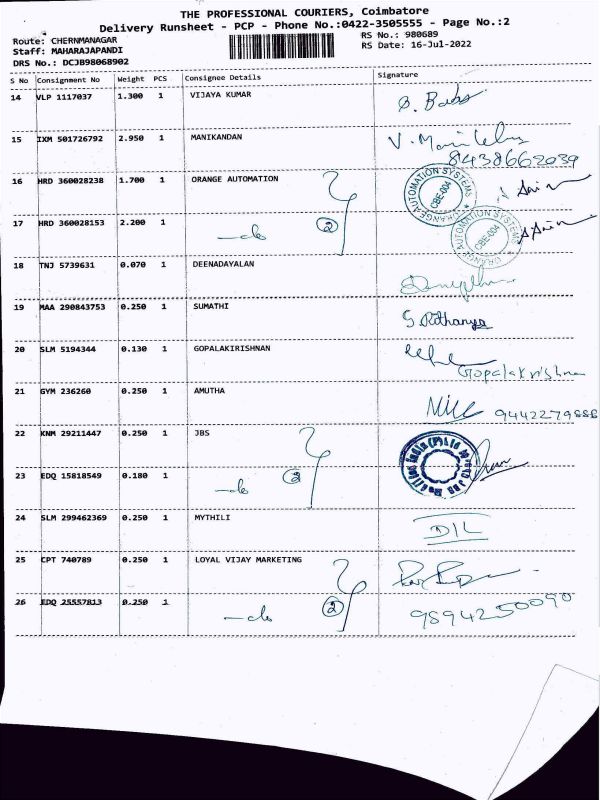 THE PROFESSIONAL COURIERS, Coimbatore
Delivery Runsheet - PCP - Phone No.:0422-3505555 - Page No.:2
Route: CHERNMANAGAR RS No.: 980689
Staff: MAHARAJAPANDI RS Date: 16-Jul-2022
DRS No.: DCJB98068902
S No Consignment No Weight PCS Consignee Details Signature
14 VLP 1117037 1.300 1 VIJAYA KUMAR
15 IXM 501726792 2.950 1 MANIKANDAN
8438662039
16 HRD 360028238 1.700 1 ORANGE AUTOMATION ORANGE AUTOMATION SYSTEMS CBE-004
17 HRD 360028153 2.200 1 -do 2 ORANGE AUTOMATION SYSTEMS CBE-004
18 TNJ 5739631 0.070 1 DEENADAYALAN
19 MAA 290843753 0.250 1 SUMATHI
20 SLM 5194344 0.130 1 GOPALAKIRISHNAN
Gopalakrishna
21 GYM 236260 0.250 1 AMUTHA
22 KNM 29211447 0.250 1 JBS
23 EDQ 15818549 0.180 1 -do 2
24 SLM 299462369 0.250 1 MYTHILI D/L
25 CPT 740789 0.250 1 LOYAL VIJAY MARKETING
26 EDQ 25557813 0.250 1 -do 2 9894250090